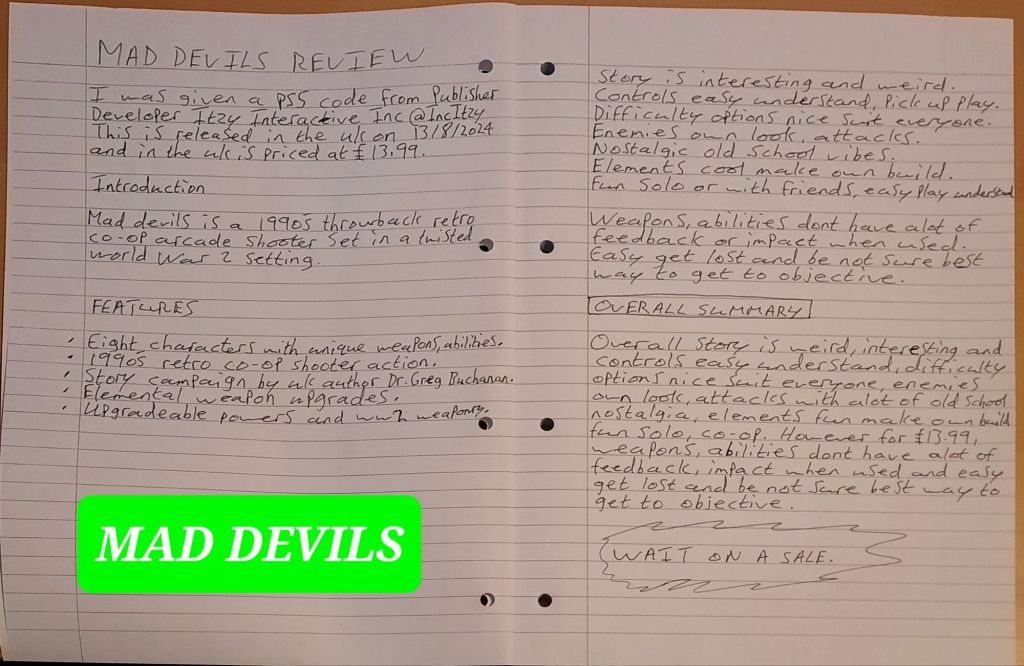 MAD DEVILS REVIEW
I was given a PS5 code from Publisher
Developer Itzy Interactive Inc @IncItzy
This is released in the uk on 13/8/2024
and in the uk is priced at £13.99.
Introduction
Mad devils is a 1990s throwback retro
co-op arcade shooter set in a twisted
world War 2 setting.
FEATURES
· Eight characters with unique weapons, abilities.
· 1990s retro co-op shooter action.
· Story campaign by uk author Dr. Greg Buchanan.
· Elemental weapon upgrades.
· Upgradeable powers and ww2 weaponry.
MAD DEVILS
Story is interesting and weird.
Controls easy understand, Pick up play.
Difficulty options nice suit everyone.
Enemies own look, attacks.
Nostalgic old school vibes.
Elements cool make own build.
Fun solo or with friends, easy play understand
Weapons, abilities dont have alot of
feedback or impact when used.
Easy get lost and be not sure best
way to get to objective.
OVERALL SUMMARY
Overall story is weird, interesting and
controls easy understand, difficulty
options nice suit everyone, enemies
own look, attacks with alot of old school
nostalgia, elements fun make own build
fun solo, co-op. However for £13.99,
weapons, abilities dont have alot of
feedback, impact when used and easy
get lost and be not sure best way to
get to objective.
WAIT ON A SALE.